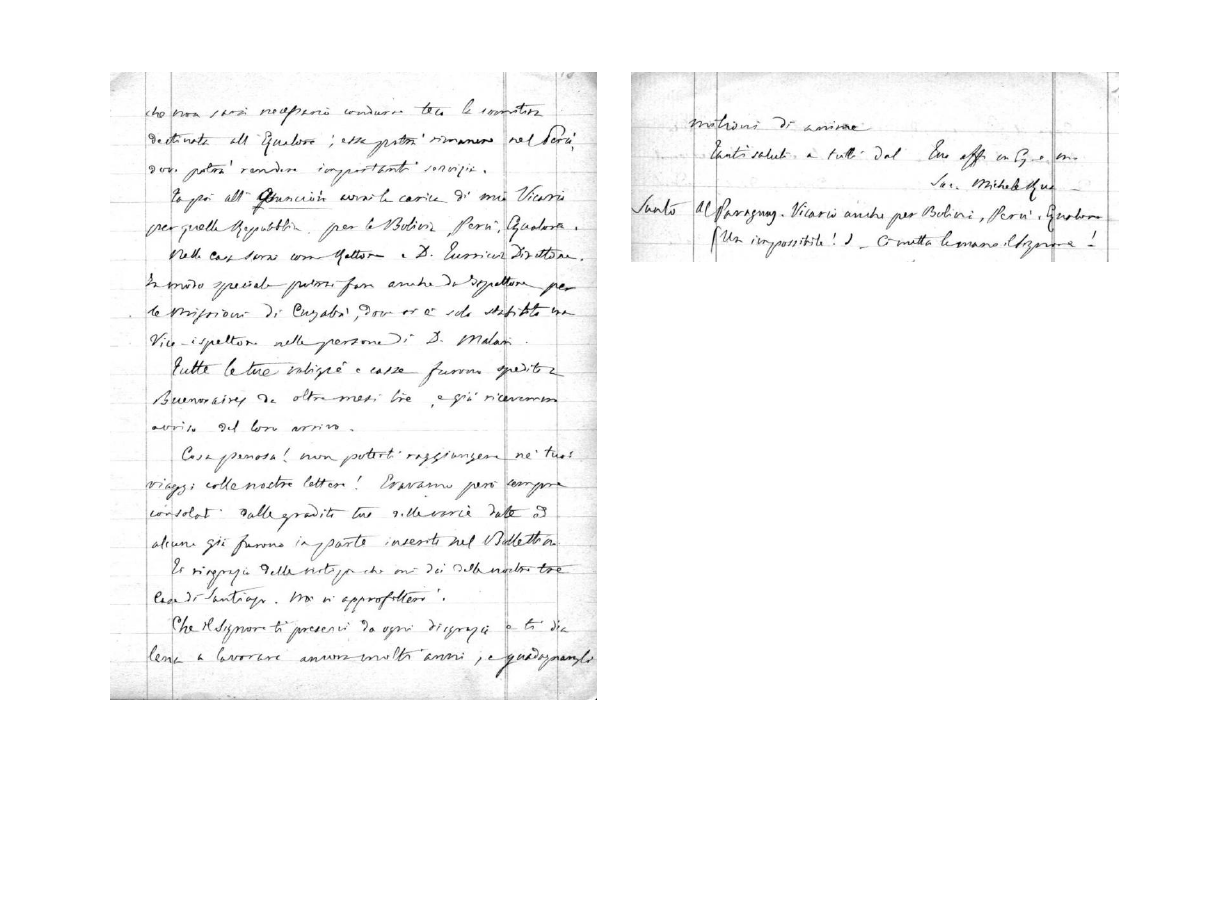 che non sarà necessario condurre teco la comitiva
destinata all'Equatore; essa potrà rimanere nel Perù,
dove potrà rendere importanti servizi.
Tu poi all'Assunción avrai la carica di mio Vicario
per quella Repubblica, per la Bolivia, Perù, Equatore.
Nella casa sarai come Rettore e D. Turriccia Direttore.
In modo speciale potrai fare anche da Ispettore per
le Missioni di Cuyabà, dove or è solo stabilito un
Vice-ispettore nella persona di D. Malan.
Tutte le tue valigie e casse furono spedite a
Buenos aires da oltre mesi tre, e già ricevemmo
avviso del loro arrivo.
Cosa penosa! non poterti raggiungere ne' tuoi
viaggi colle nostre lettere! Eravamo però sempre
consolati dalle gradite tue dalle varie date ed
alcune già furono in parte inserite nel Bollettino.
Ti ringrazio delle notizie che mi dai delle nostre tre
Case di Santiago. Ne approfitterò.
Che il Signore ti preservi da ogni disgrazia e ti dia
lena a lavorare ancora molti anni, e guadagnargli
milioni di anime
Tanti saluti a tutti dal Tuo aff. in G. e M.
Sac. Michele Rua
Sunto Al Paraguay. Vicario anche per Bolivia, Perù, Equatore
(Un impossibile!) - Ci metta la mano il Signore!